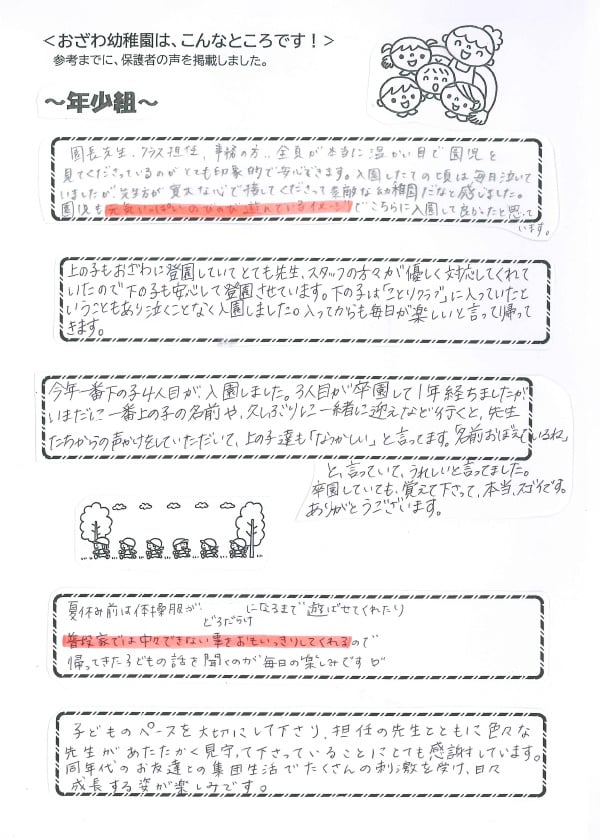 ＜おざわ幼稚園は、こんなところです！＞
参考までに、保護者の声を掲載しました。
～年少組～
園長先生、クラス担任、事務の方、全員が本当に温かい目で園児を
見てくださっているのがとても印象的で安心できます。入園したての頃は毎日泣いて
いましたが、先生方が寛大な心で接してくださって素敵な幼稚園だなと感じました。
園児も元気いっぱいのびのび遊んでいるイメージでこちらに入園して良かったと思って
います。
上の子もおざわに登園していてとても先生、スタッフの方々が優しく対応してくれて
いたので下の子も安心して登園させています。下の子は「ことりクラブ」に入っていたと
いうこともあり泣くことなく入園しました。入ってからも毎日が楽しいと言って帰って
きます。
今年一番下の子4人目が入園しました。3人目が卒園して1年経ちましたが
いまだに一番上の子の名前や、久しぶりに一緒に迎えなど行くと、先生
たちからの声かけをしていただいて、上の子達も「なつかしい」と言ってます。「名前おぼえているね」
と、言っていて、うれしいと言ってました。
卒園していても、覚えて下さって、本当、スゴイです。
ありがとうございます。
夏休み前は体操服がどろだらけになるまで遊ばせてくれたり
普段家では中々できない事をおもいっきりしてくれるので
帰ってきた子どもの話を聞くのが毎日の楽しみです
子どものペースを大切にして下さり、担任の先生とともに色々な
先生があたたかく見守って下さっていることにとても感謝しています。
同年代のお友達との集団生活でたくさんの刺激を受け、日々
成長する姿が楽しみです。